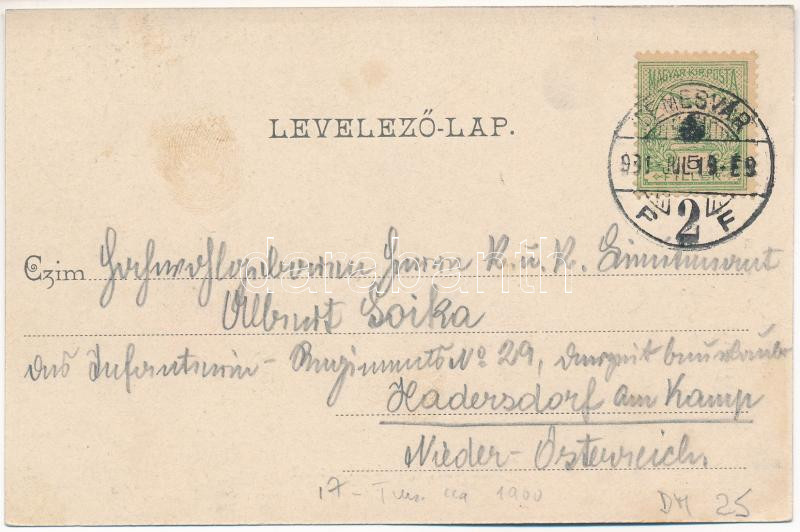 MAGYAR KIR. POSTA
5
FILLÉR
TEMESVÁR
2
P F
LEVELEZŐ-LAP.
darabanth.com
Czim Hochwohlgeboren Herrn K. u. K. Lieutenant
Albert Soika
des Infanterie-Regiments No 29, derzeit beurlaubt
Hadersdorf am Kamp
Nieder-Österreich.
17 - 1900
DM 25